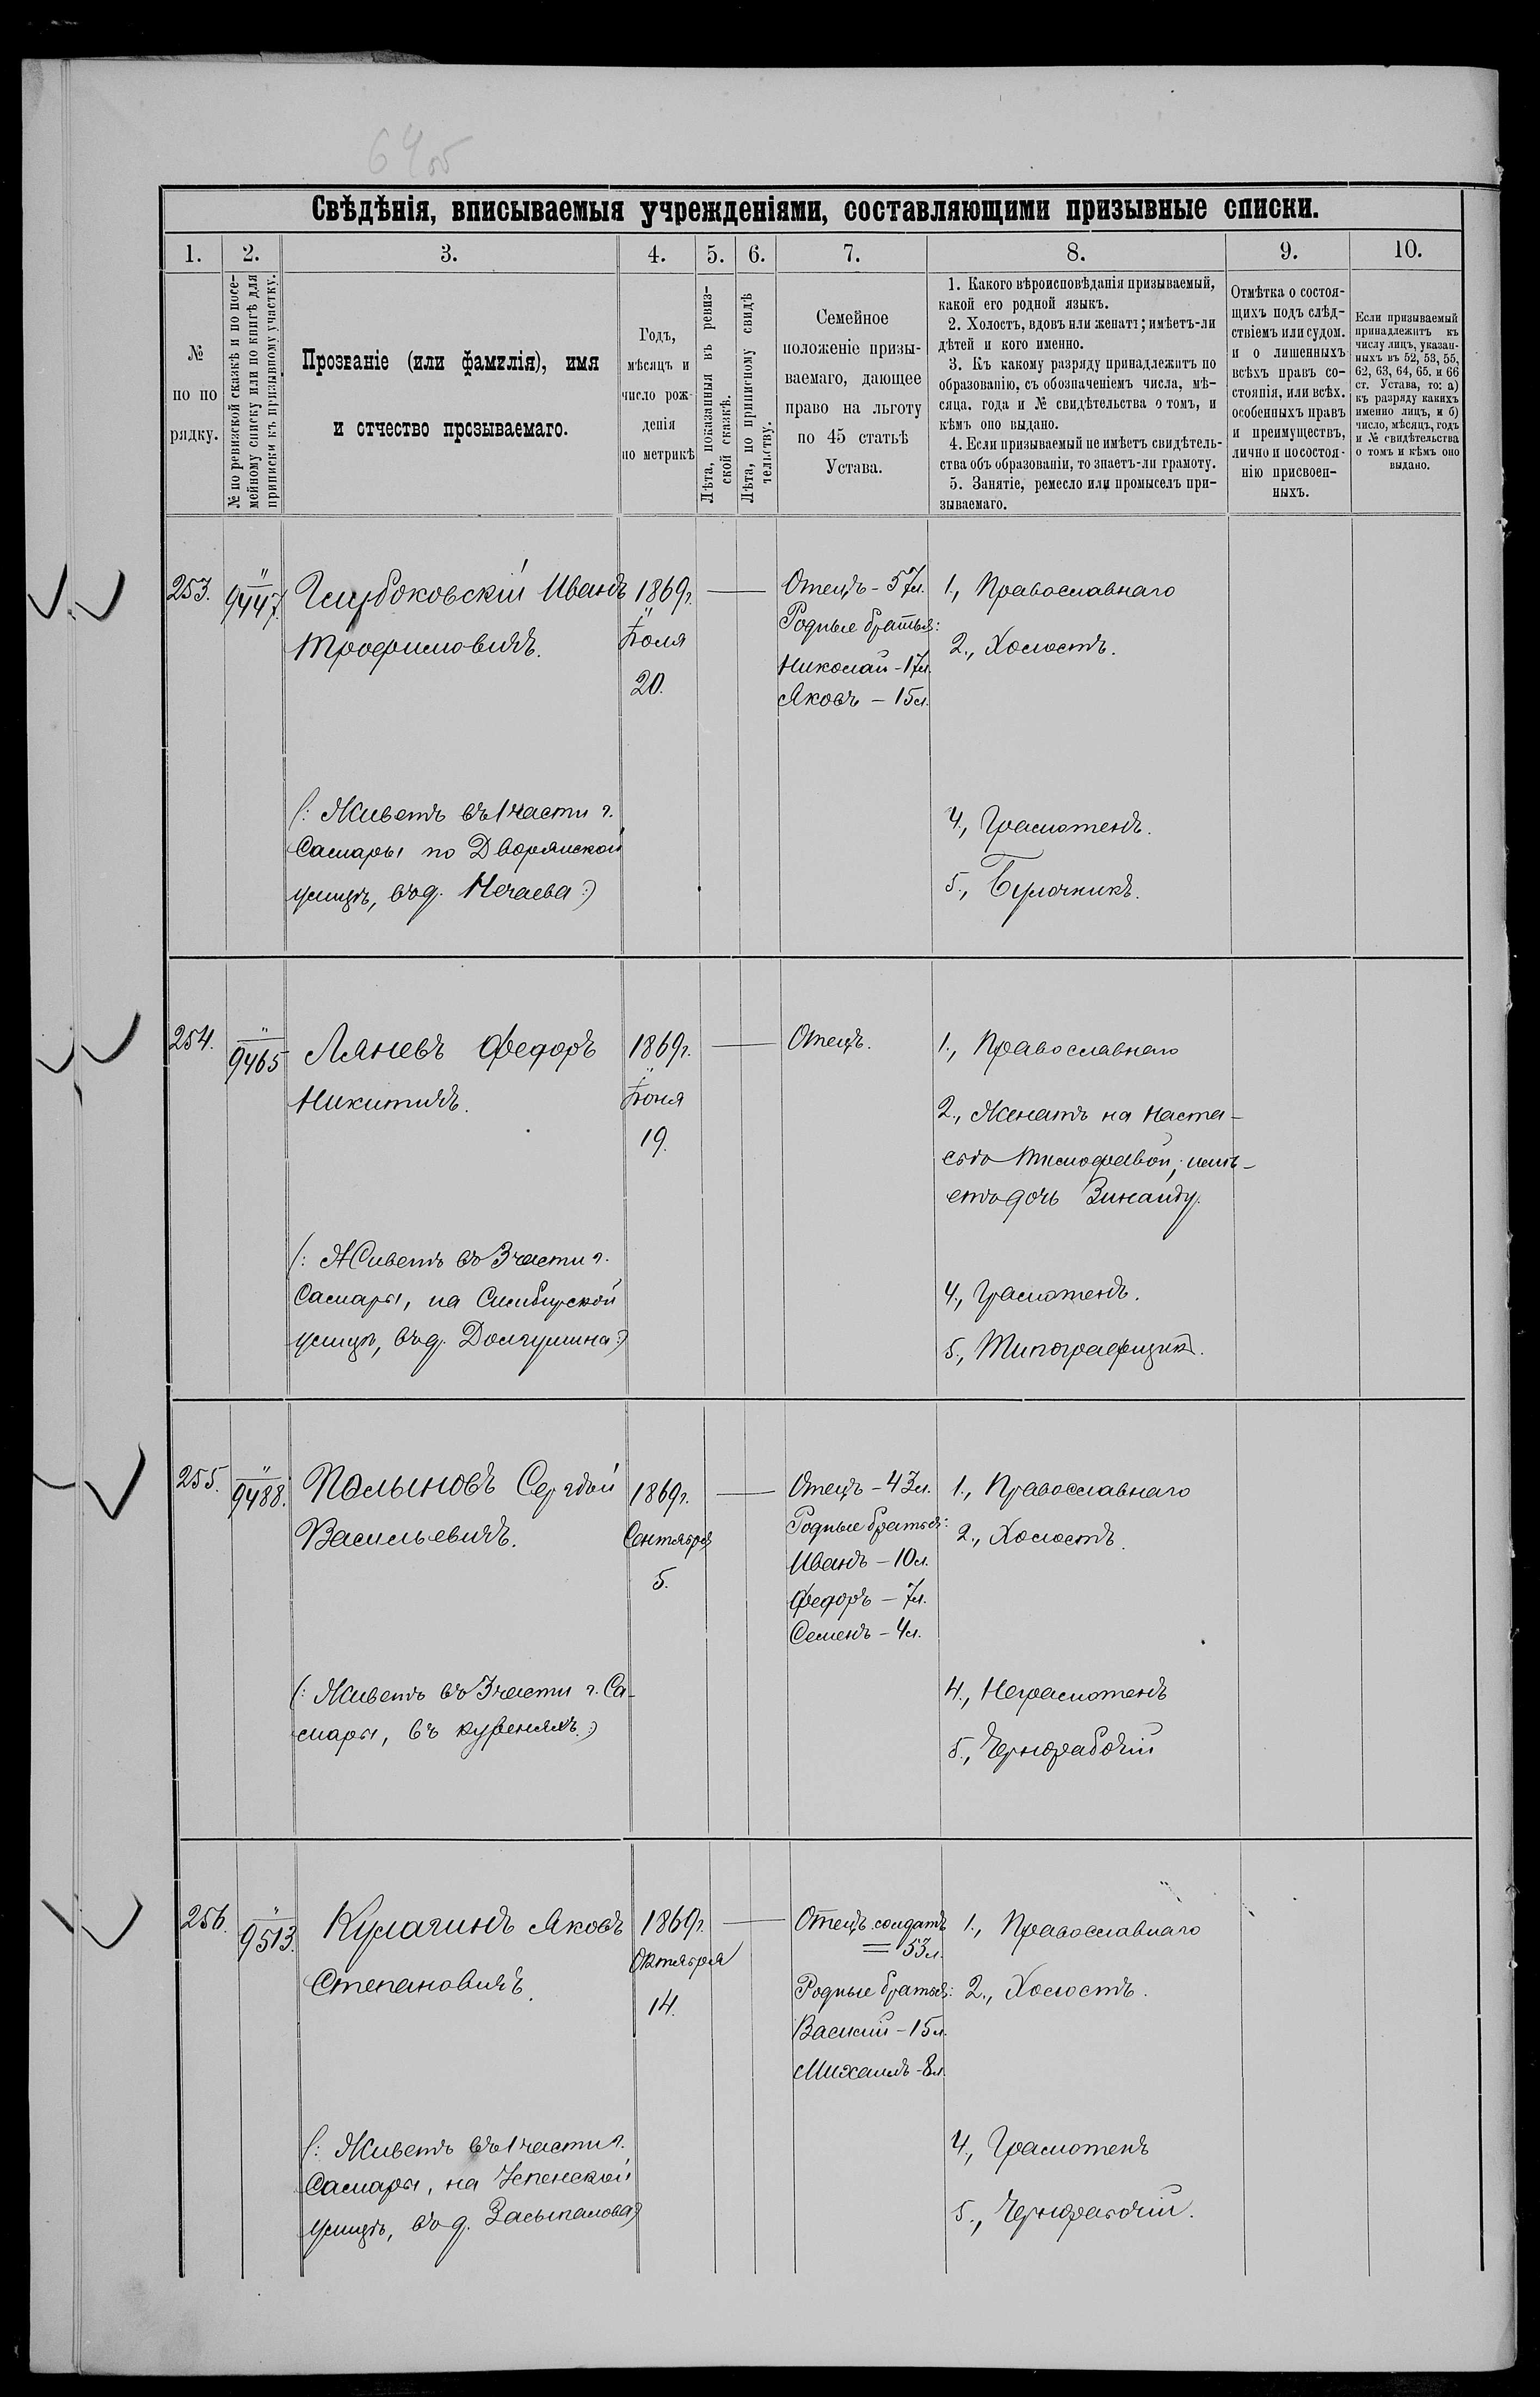 64об
Свѣдѣнія, вписываемыя учрежденіями, составляющими призывные списки.
1. 2. 3. 4. 5. 6. 7. 8. 9. 10.
№
по по
рядку.
№ по ревизской сказкѣ и по посе-
мейному списку или по книгѣ для
приписки къ призывному участку.
Прозваніе (или фамилія), имя
и отчество прозываемаго.
Годъ,
мѣсяцъ и
число рож-
денія
по метрикѣ
Лѣта, показанныя въ ревиз-
ской сказкѣ.
Лѣта, по приписному свидѣ
тельству.
Семейное
положеніе призы-
ваемаго, дающее
право на льготу
по 45 статьѣ
Устава.
1. Какого вѣроисповѣданія призываемый,
какой его родной языкъ.
2. Холостъ, вдовъ или женатъ; имѣетъ-ли
дѣтей и кого именно.
3. Къ какому разряду принадлежитъ по
образованію, съ обозначеніемъ числа, мѣ-
сяца, года и № свидѣтельства о томъ, и
кѣмъ оно выдано.
4. Если призываемый не имѣетъ свидѣтель-
ства объ образованіи, то знаетъ-ли грамоту.
5. Занятіе, ремесло или промыселъ при-
зываемаго.
Отмѣтка о состоя-
щихъ подъ слѣд-
ствіемъ или судом.
и о лишенныхъ
всѣхъ правъ со-
стоянія, или всѣх.
особенныхъ правъ
и преимуществъ,
лично и по состоя-
нію присвоен-
ныхъ.
Если призываемый
принадлежитъ къ
числу лицъ, указан-
ныхъ въ 52, 53, 55,
62, 63, 64, 65. и 66
ст. Устава, то: а)
къ разряду какихъ
именно лицъ, и б)
число, мѣсяцъ, годъ
и № свидѣтельства
о томъ и кѣмъ оно
выдано.
253.
"
9447.
Глубоковскій Иванъ
Трофимовичъ.
(: Живетъ въ 1 части г.
Самары по Дворянской
улицѣ, въ д. Нечаева :)
1869 г.
Іюля
20.
Отецъ - 57 л.
Родные братья:
Николай - 17 л.
Яковъ - 15 л.
1., Православнаго
2., Холостъ.
4., Грамотенъ.
5., Булочникъ.
254.
"
9465
Ляневъ Федоръ
Никитичъ.
(: Живетъ въ 3 части г.
Самары, на Симбирской
улицѣ, въ д. Долгушина :)
1869 г.
Іюня
19.
Отецъ.
1., Православнаго
2., Женатъ на Наста-
сьѣ Тимофѣевой, имѣ-
етъ дочь Зинаиду.
4., Грамотенъ.
5., Типографщикъ.
255.
"
9488.
Полыновъ Сергѣй
Васильевичъ.
(: Живетъ въ 3 части г. Са-
мары, въ куреняхъ. :)
1869 г.
Сентября
5.
Отецъ - 43 л.
Родные братья:
Иванъ - 10 л.
Федоръ - 7 л.
Семенъ - 4 л.
1., Православнаго
2., Холостъ.
4., Неграмотенъ
5., Чернорабочій
256.
"
9513.
Кулагинъ Яковъ
Степановичъ.
(: Живетъ въ 1 части г.
Самары, на Успенской
улицѣ, въ д. Засыпалова :)
1869 г.
Октября
14.
Отецъ солдатъ
= 53 л.
Родные братья:
Василій - 15 л.
Михаилъ - 8 л.
1., Православнаго
2., Холостъ.
4., Грамотенъ
5., Чернорабочій.